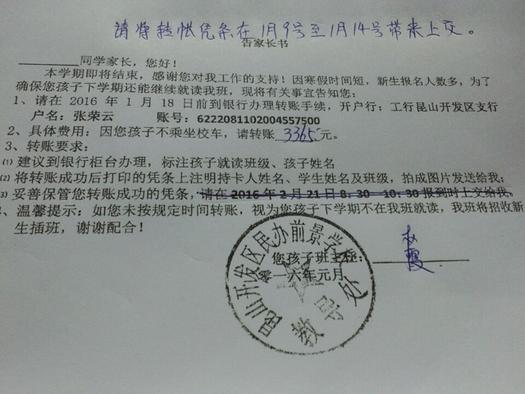 请将转帐凭条在1月9号至1月14号带来上交。
告家长书
________同学家长，您好！
本学期即将结束，感谢您对我工作的支持！因寒假时间短，新生报名人数多，为了
确保您孩子下学期还能继续就读我班，现将有关事宜告知您：
1、请在 2016 年 1 月 18 日前到银行办理转账手续，开户行：工行昆山开发区支行
户名：张荣云 账号：6222081102004557500
2、具体费用：因您孩子不乘坐校车，请转账 3365 元。
3、转账要求：
⑴ 建议到银行柜台办理，标注孩子就读班级、孩子姓名
⑵ 将转账成功后打印的凭条上注明持卡人姓名、学生姓名及班级，拍成图片发送给我；
⑶ 妥善保管您转账成功的凭条，请在 2016 年 2 月 21 日 8：30—10：30 报到时上交给我。
、温馨提示：如您未按规定时间转账，视为您孩子下学期不在我班就读，我班将招收新
生插班，谢谢配合！
您孩子班主任：
零一六年元月
昆山开发区民办前景学校
教导处